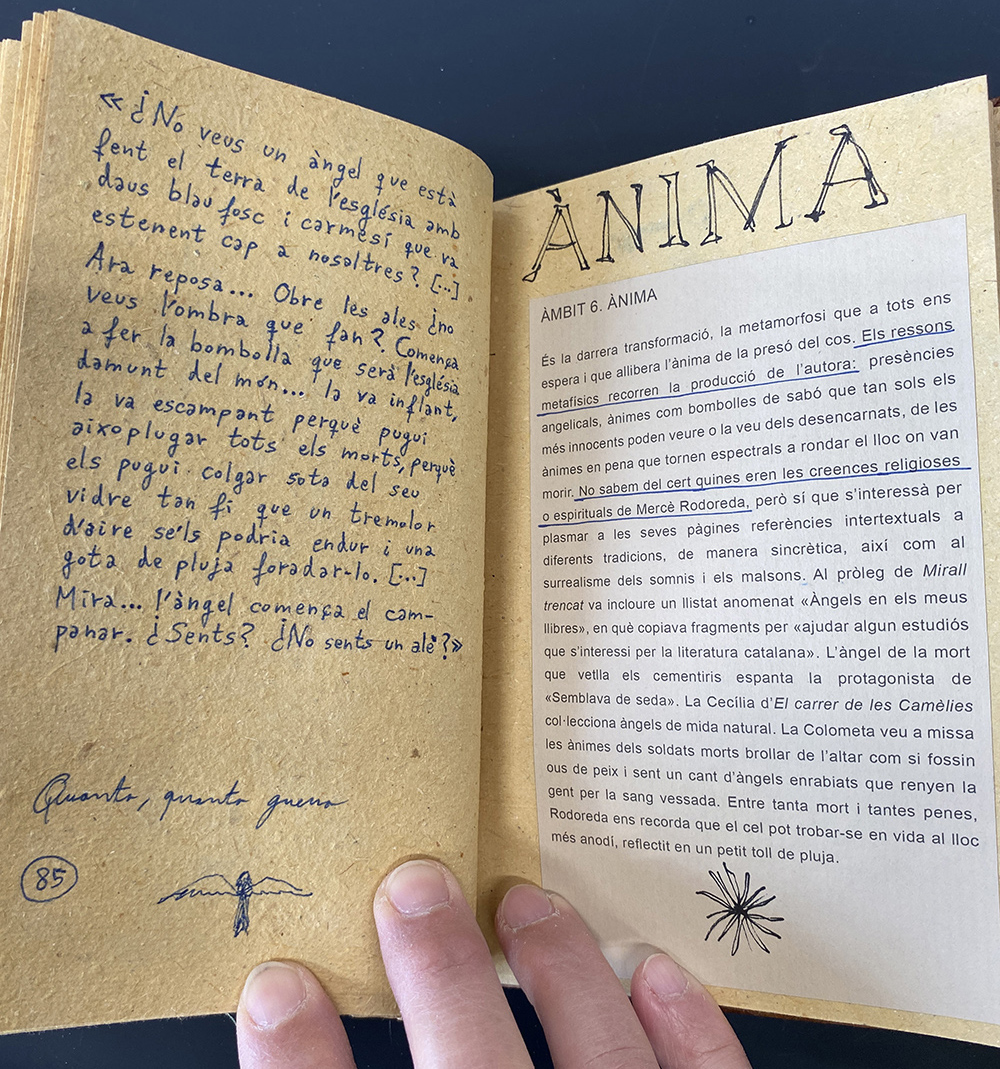 «¿No veus un àngel que està
fent el terra de l'església amb
daus blau fosc i carmesí que va
estenent cap a nosaltres? [...]
Ara reposa... Obre les ales ¿no
veus l'ombra que fan? Comença
a fer la bombolla que serà l'església
damunt del món... la va inflant,
la va escampant perquè pugui
aixoplugar tots els morts, perquè
els pugui colgar sota del seu
vidre tan fi que un tremolor
d'aire se'ls podria endur i una
gota de pluja foradar-lo. [...]
Mira... l'àngel comença el cam-
panar. ¿Sents? ¿No sents un alè?»
Quanta, quanta guerra
85
ÀNIMA
ÀMBIT 6. ÀNIMA
És la darrera transformació, la metamorfosi que a tots ens
espera i que allibera l'ànima de la presó del cos. Els ressons
metafísics recorren la producció de l'autora: presències
angelicals, ànimes com bombolles de sabó que tan sols els
més innocents poden veure o la veu dels desencarnats, de les
ànimes en pena que tornen espectrals a rondar el lloc on van
morir. No sabem del cert quines eren les creences religioses
o espirituals de Mercè Rodoreda, però sí que s'interessà per
plasmar a les seves pàgines referències intertextuals a
diferents tradicions, de manera sincrètica, així com al
surrealisme dels somnis i els malsons. Al pròleg de Mirall
trencat va incloure un llistat anomenat «Àngels en els meus
llibres», en què copiava fragments per «ajudar algun estudiós
que s'interessi per la literatura catalana». L'àngel de la mort
que vetlla els cementiris espanta la protagonista de
«Semblava de seda». La Cecília d'El carrer de les Camèlies
col·lecciona àngels de mida natural. La Colometa veu a missa
les ànimes dels soldats morts brollar de l'altar com si fossin
ous de peix i sent un cant d'àngels enrabiats que renyen la
gent per la sang vessada. Entre tanta mort i tantes penes,
Rodoreda ens recorda que el cel pot trobar-se en vida al lloc
més anodí, reflectit en un petit toll de pluja.